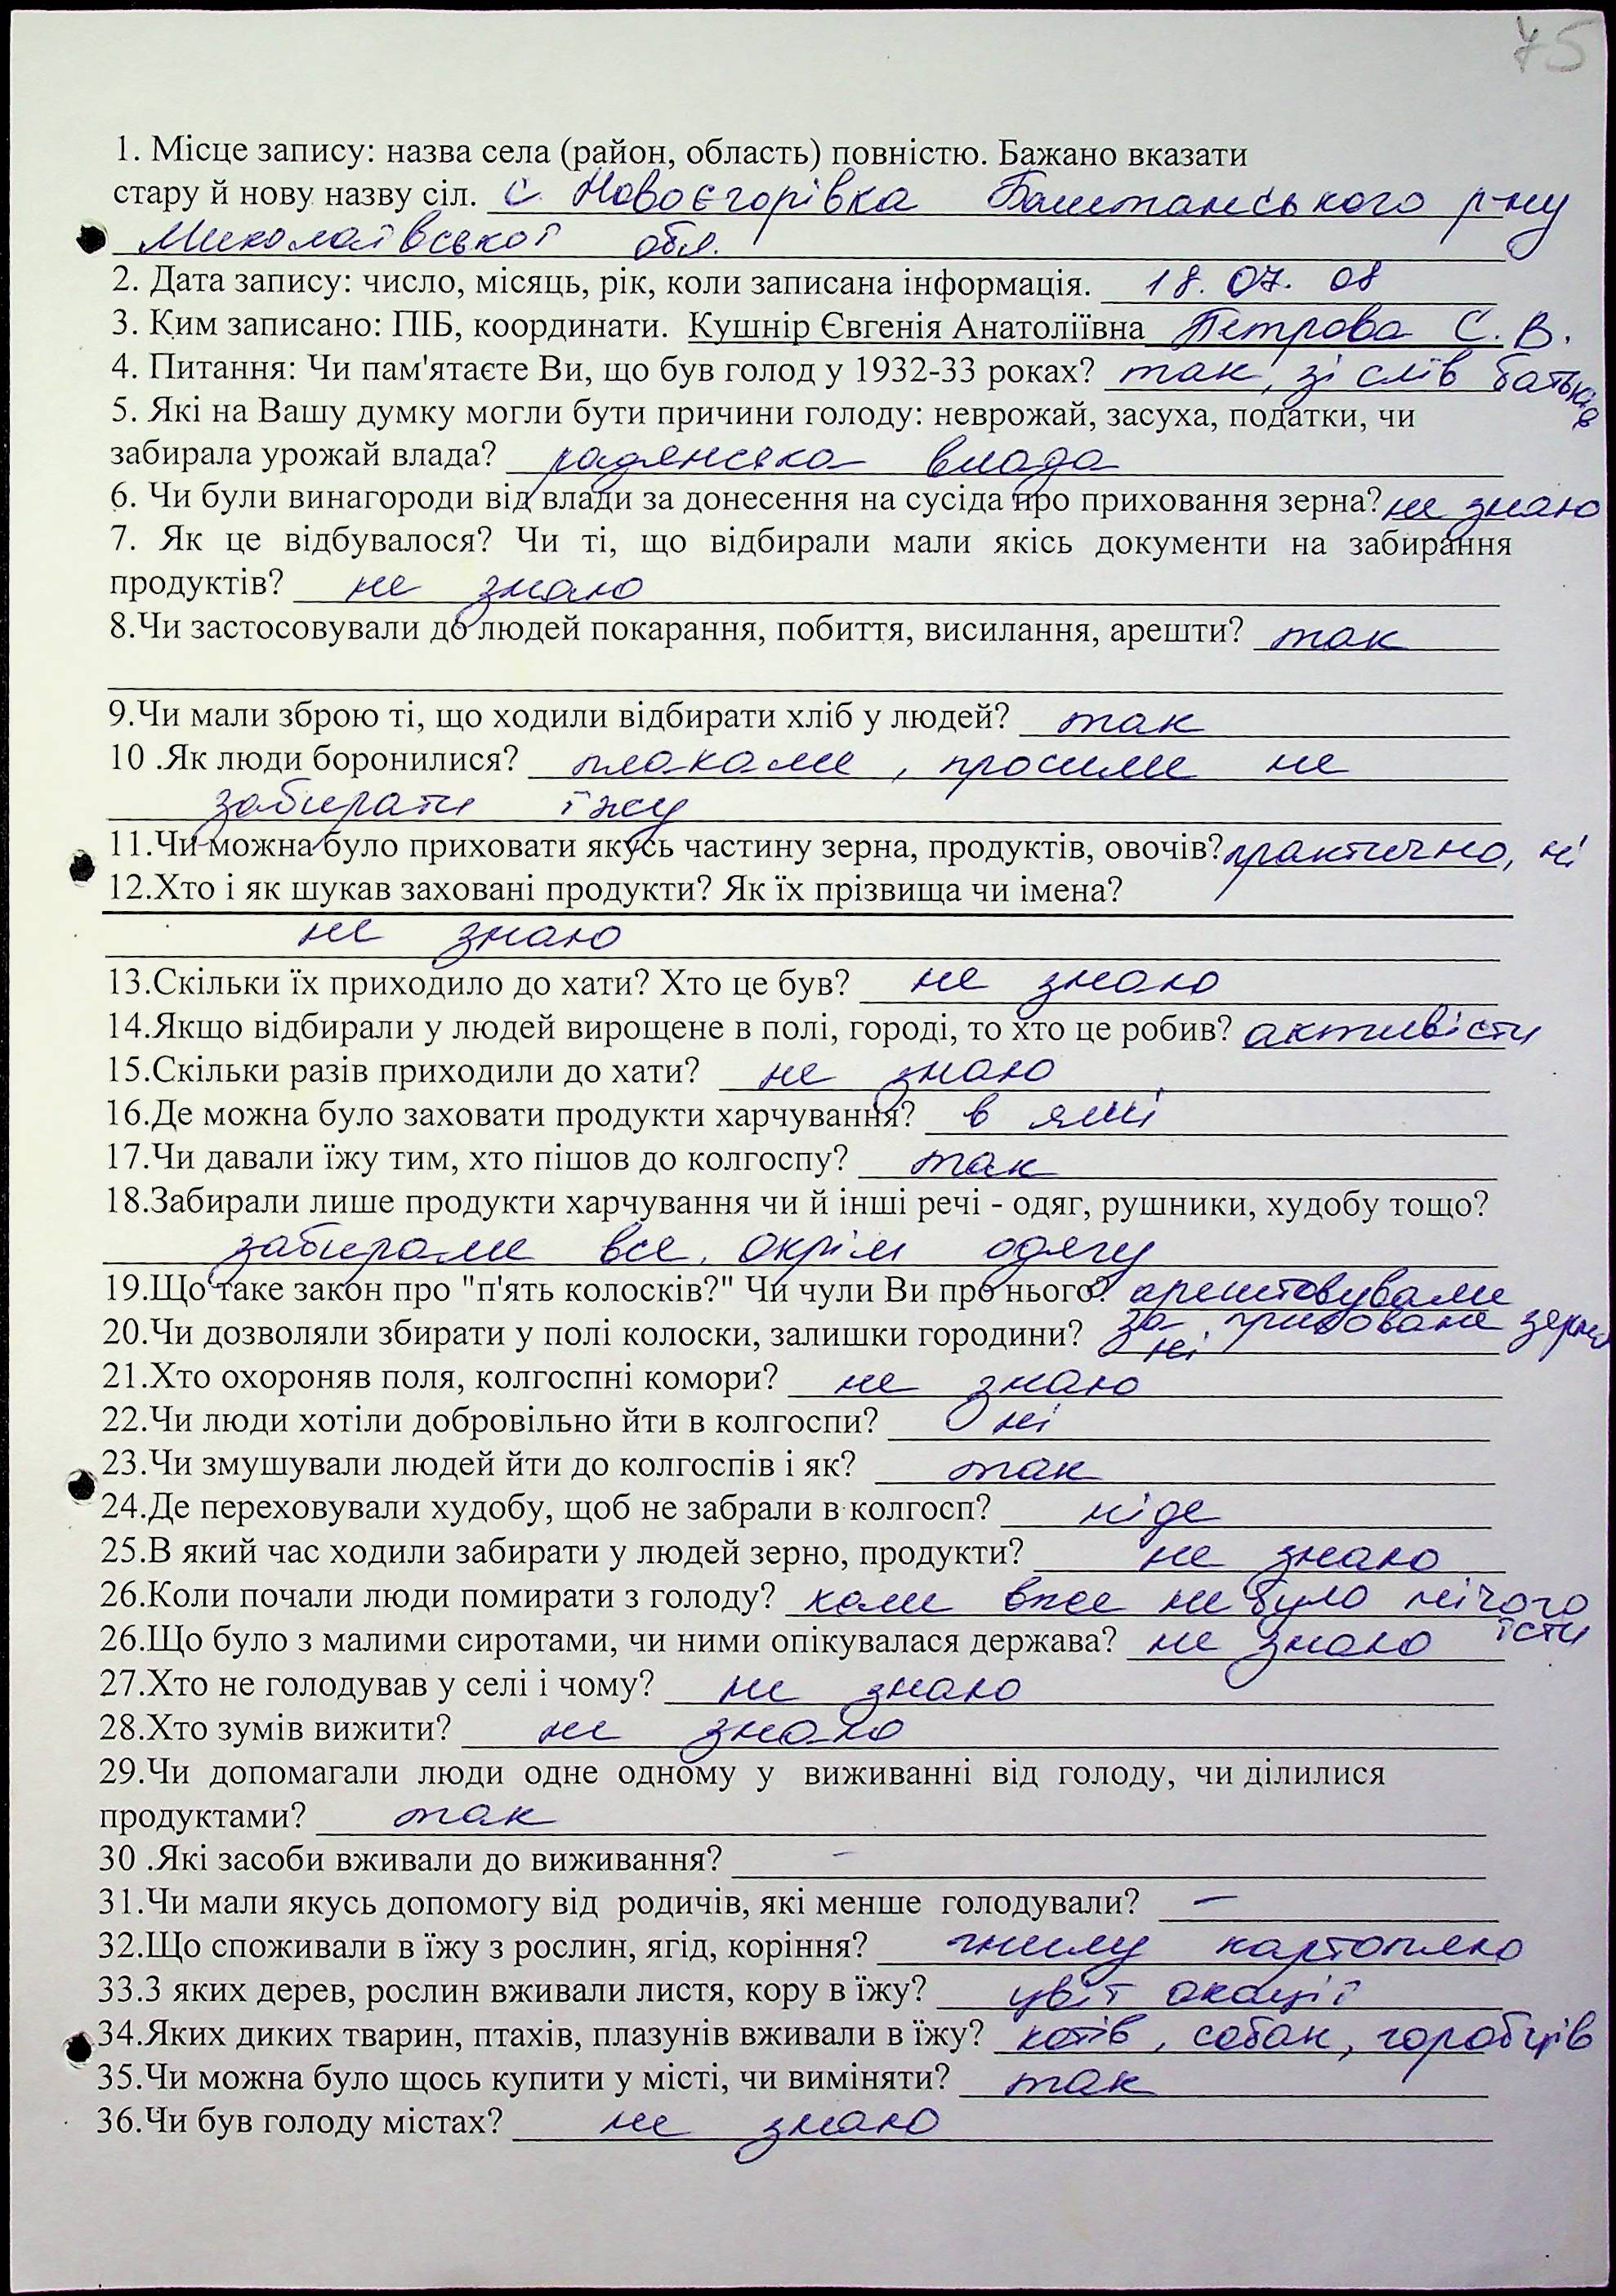 75
1. Місце запису: назва села (район, область) повністю. Бажано вказати
стару й нову назву сіл. с. Новоєгорівка Баштанського р-ну
Миколаївської обл.
2. Дата запису: число, місяць, рік, коли записана інформація. 18. 07. 08
3. Ким записано: ПІБ, координати. Кушнір Євгенія Анатоліївна Петрова С. В.
4. Питання: Чи пам'ятаєте Ви, що був голод у 1932-33 роках? так, зі слів батьків
5. Які на Вашу думку могли бути причини голоду: неврожай, засуха, податки, чи
забирала урожай влада? радянська влада
6. Чи були винагороди від влади за донесення на сусіда про приховання зерна? не знаю
7. Як це відбувалося? Чи ті, що відбирали мали якісь документи на забирання
продуктів? не знаю
8.Чи застосовували до людей покарання, побиття, висилання, арешти? так
9.Чи мали зброю ті, що ходили відбирати хліб у людей? так
10 .Як люди боронилися? плакали, просили не
забирати їжу
11.Чи можна було приховати якусь частину зерна, продуктів, овочів? практично, ні
12.Хто і як шукав заховані продукти? Як їх прізвища чи імена?
не знаю
13.Скільки їх приходило до хати? Хто це був? не знаю
14.Якщо відбирали у людей вирощене в полі, городі, то хто це робив? активісти
15.Скільки разів приходили до хати? не знаю
16.Де можна було заховати продукти харчування? в ямі
17.Чи давали їжу тим, хто пішов до колгоспу? так
18.Забирали лише продукти харчування чи й інші речі - одяг, рушники, худобу тощо?
забирали все, окрім одягу
19.Що таке закон про "п'ять колосків?" Чи чули Ви про нього? арештовували
за приховане зерно
20.Чи дозволяли збирати у полі колоски, залишки городини? ні
21.Хто охороняв поля, колгоспні комори? не знаю
22.Чи люди хотіли добровільно йти в колгоспи? ні
23.Чи змушували людей йти до колгоспів і як? так
24.Де переховували худобу, щоб не забрали в колгосп? ніде
25.В який час ходили забирати у людей зерно, продукти? не знаю
26.Коли почали люди помирати з голоду? коли вже не було нічого
їсти
26.Що було з малими сиротами, чи ними опікувалася держава? не знаю
27.Хто не голодував у селі і чому? не знаю
28.Хто зумів вижити? не знаю
29.Чи допомагали люди одне одному у виживанні від голоду, чи ділилися
продуктами? так
30 .Які засоби вживали до виживання? -
31.Чи мали якусь допомогу від родичів, які менше голодували? -
32.Що споживали в їжу з рослин, ягід, коріння? гнилу картоплю
33.З яких дерев, рослин вживали листя, кору в їжу? цвіт акації
34.Яких диких тварин, птахів, плазунів вживали в їжу? котів, собак, горобців
35.Чи можна було щось купити у місті, чи виміняти? так
36.Чи був голоду містах? не знаю